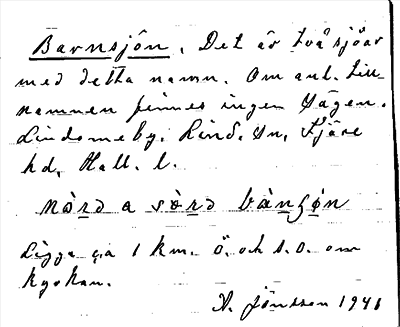 Barnsjön. Det är två sjöar
med detta namn. Om anl. till
namnen finnes ingen sägen.
Lindomeby. Lind. sn, Fjäre
hd, Hall. l.
nørd a sørd bànʂøn
Ligga ca 1 km. ö. och s.o. om
kyrkan.
A. Jönsson 1941